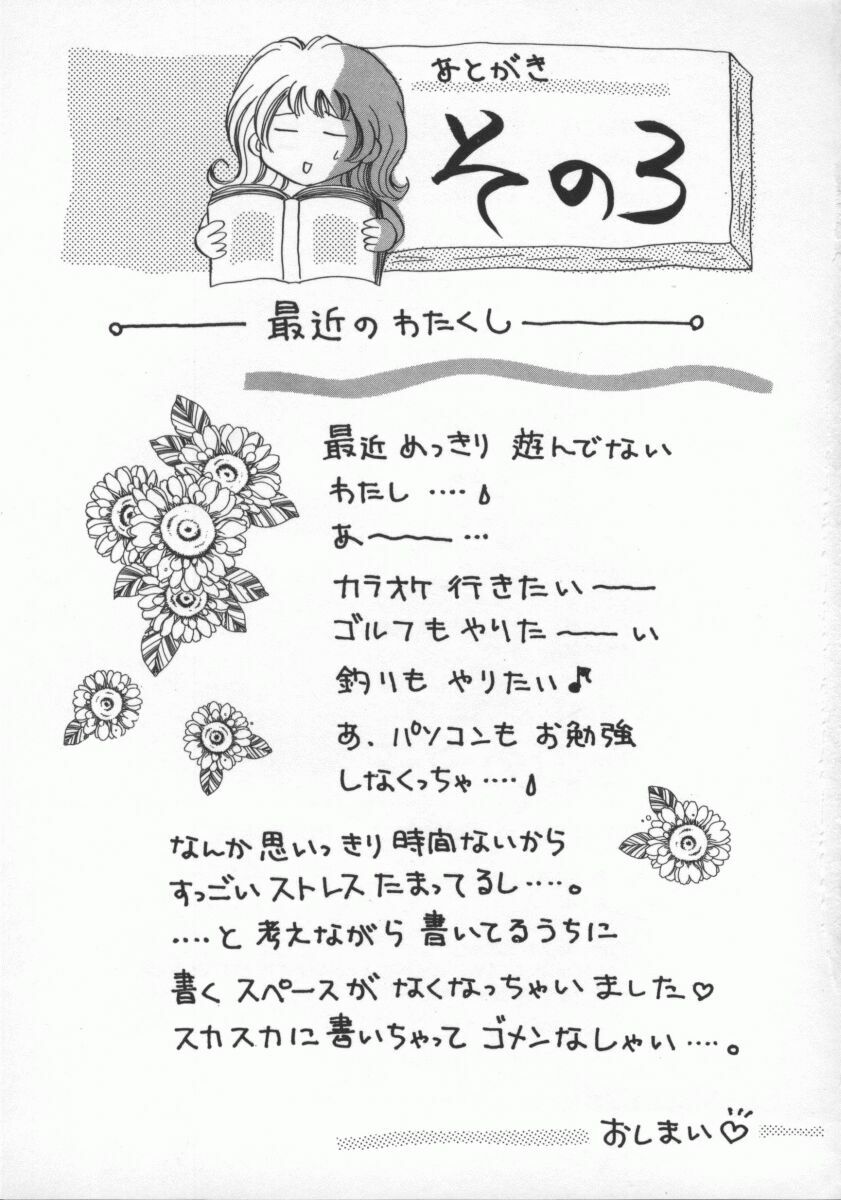 あとがき
その3
最近のわたくし
最近 めっきり 遊んでない
わたし ‥‥
あ〜 …
カラオケ 行きたい〜
ゴルフも やりた〜い
釣りも やりたい♪
あ、パソコンも お勉強
しなくっちゃ ‥‥
なんか 思いっきり 時間ないから
すっごい ストレス たまってるし ‥‥。
‥‥と 考えながら 書いてるうちに
書く スペースが なくなっちゃいました♡
スカスカに 書いちゃって ゴメンなしゃい ‥‥。
おしまい♡